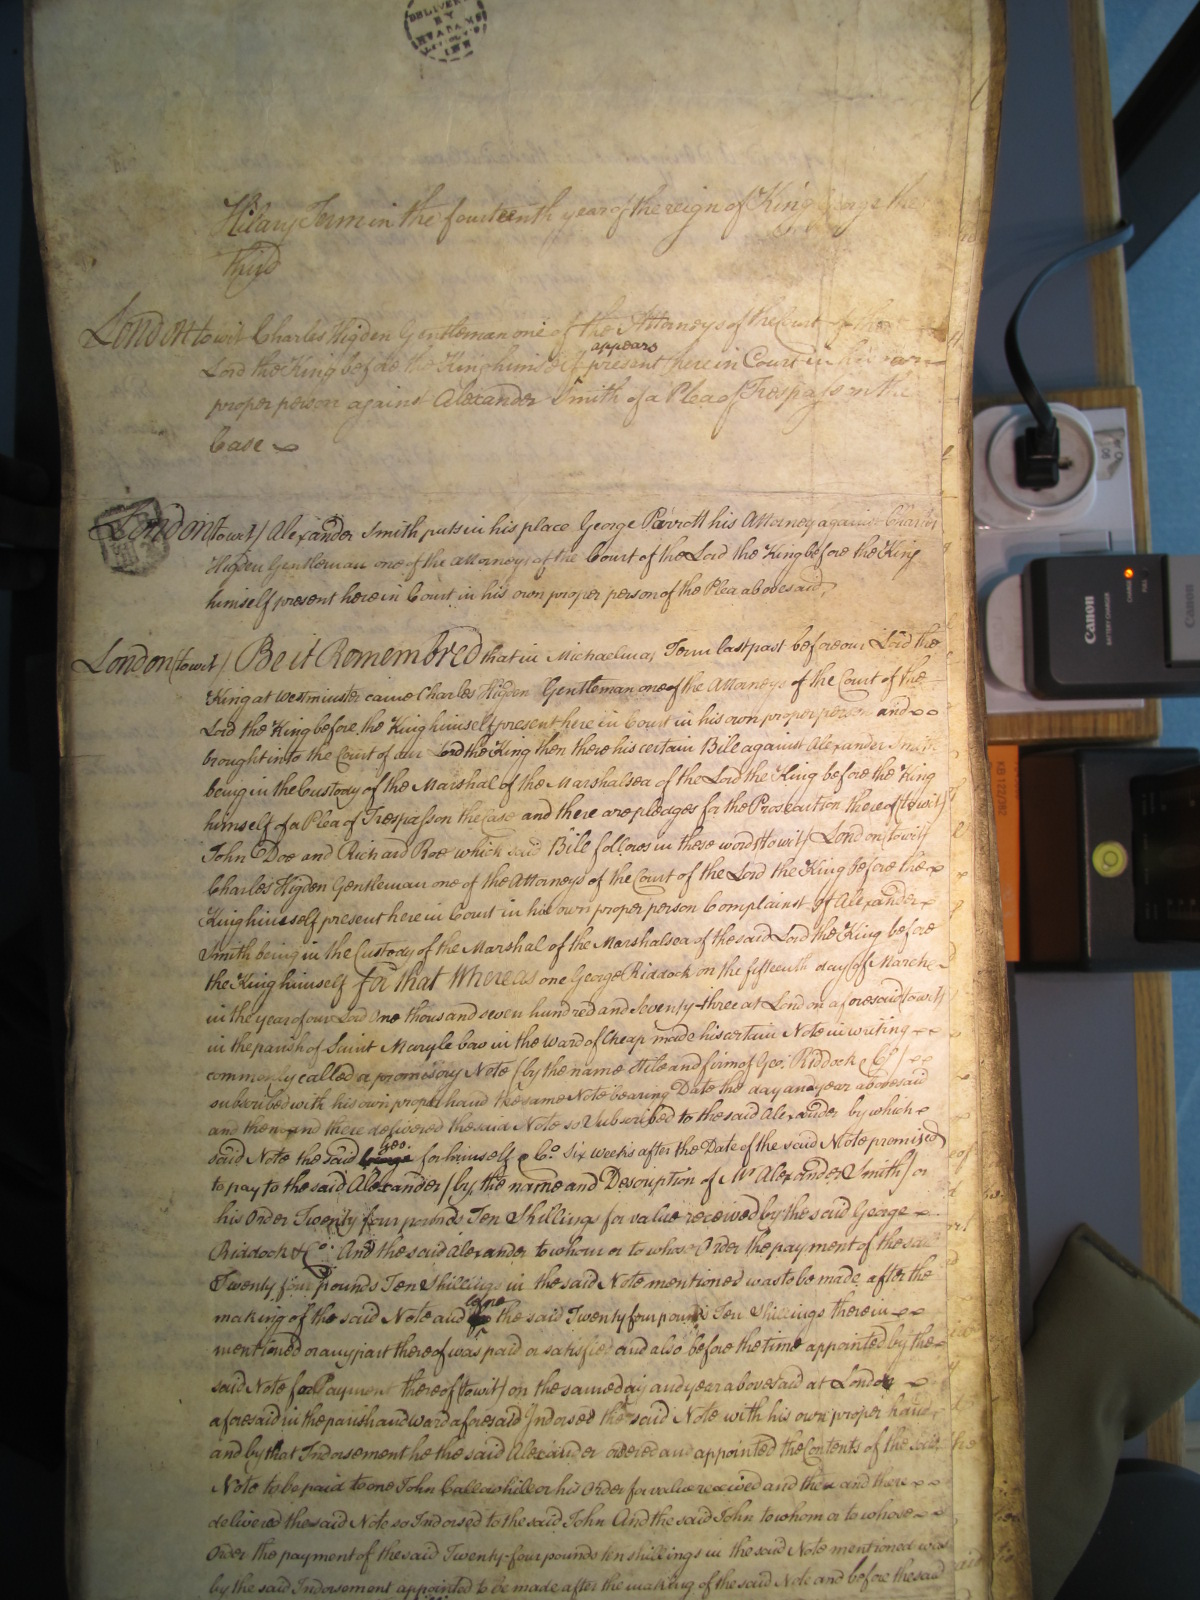 DELIVERED
BY
INN
Hilary Term in the fourteenth year of the reign of King George the
Third
London to wit Charles Higden Gentleman one of the Attorneys of the Court of the
appears
Lord the King before the King himself present here in Court in his own
proper person against Alexander Smith of a Plea of Trespass on the
Case
London (towit) Alexander Smith puts in his place George Parrott his Attorney against Charles
Higden Gentleman one of the Attorneys of the Court of the Lord the King before the King
himself present here in Court in his own proper person of the Plea abovesaid,
London (towit) Be it Remembred that in Michaelmas Term last past before our Lord the
King at Westminster came Charles Higden Gentleman one of the Attorneys of the Court of the
Lord the King before the King himself present here in Court in his own proper person and
brought into the Court of our Lord the King then there his certain Bill against Alexander Smith
being in the Custody of the Marshal of the Marshalsea of the Lord the King before the King
himself of a Plea of Trespass on the Case and there are pledges for the Prosecution thereof (towit)
John Doe and Richard Roe which said Bill follows in these words (towit) London (towit)
Charles Higden Gentleman one of the Attorneys of the Court of the Lord the King before the
King himself present here in Court in his own proper person Complains of Alexander
Smith being in the Custody of the Marshal of the Marshalsea of the said Lord the King before
the King himself for that Whereas one George Riddock on the fifteenth day of March
in the year of our Lord One thousand seven hundred and seventy-three at London aforesaid (towit)
in the parish of Saint Mary le bow in the ward of Cheap made his certain Note in writing
commonly called a promissory Note (by the name stile and firm of Geo. Riddock & Co.)
subscribed with his own proper hand the same Note bearing Date the day and year abovesaid
and then and there delivered the said Note so Subscribed to the said Alexander by which
Geo.
said Note the said George for himself & Co. Six weeks after the Date of the said Note promised
to pay to the said Alexander (by the name and Description of Mr Alexander Smith) or
his Order Twenty four pounds Ten Shillings for value received by the said George
Riddock & Co. And the said Alexander to whom or to whose Order the payment of the said
Twenty four pounds Ten Shillings in the said Note mentioned was to be made after the
before
making of the said Note and the said Twenty four pounds Ten Shillings therein
mentioned or any part thereof was paid or satisfied and also before the time appointed by the
said Note for Payment thereof (towit) on the same day and year abovesaid at London
aforesaid in the parish and ward aforesaid Indorsed the said Note with his own proper hand
and by that Indorsement he the said Alexander ordered and appointed the Contents of the said
Note to be paid to one John Callowhill or his Order for value received and then and there
delivered the said Note so Indorsed to the said John And the said John to whom or to whose
Order the payment of the said Twenty-four pounds ten shillings in the said Note mentioned was
by the said Indorsement appointed to be made after the making of the said Note and before the said
Canon
BATTERY CHARGER
CHARGE
FULL
Canon
KB 122/392